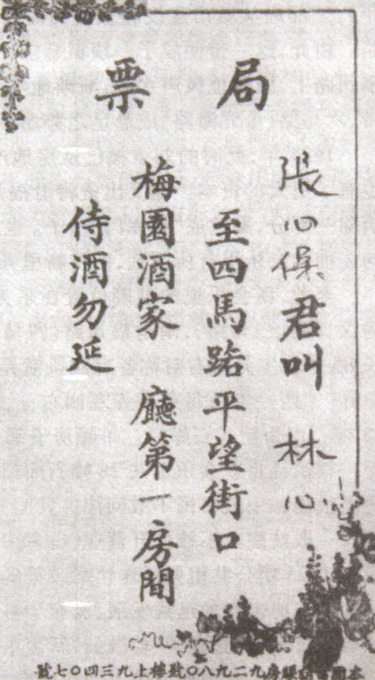 局票
張心保君叫 林心
至四馬路平望街口
梅園酒家 廳第一房間
侍酒勿延
本園 賬房九二九八〇號樓上九三四〇七號